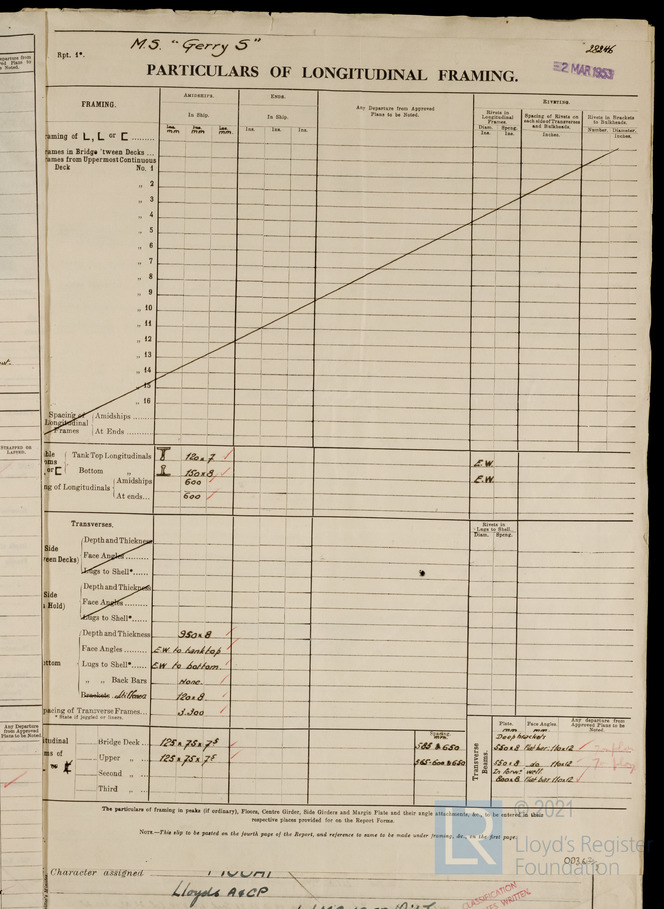 M.S. "Gerry S"
Rpt. 1*.
28246
2 MAR 1953
PARTICULARS OF LONGITUDINAL FRAMING.
FRAMING.
AMIDSHIPS.
ENDS.
Any Departure from Approved Plans to be Noted.
RIVETING.
In Ship.
In Ship.
Rivets in Longitudinal Frames.
Spacing of Rivets on each side of Transverses and Bulkheads.
Rivets in Brackets to Bulkheads.
Ins. mm Ins. mm Ins. mm
Ins. Ins. Ins.
Diam. Ins. Spcng. Ins.
Inches.
Number. Diameter. Inches.
raming of L, L or [
rames in Bridge 'tween Decks ...
rames from Uppermost Continuous
Deck No. 1
„ 2
„ 3
„ 4
„ 5
„ 6
„ 7
„ 8
„ 9
„ 10
„ 11
„ 12
„ 13
„ 14
„ 15
„ 16
Spacing of Longitudinal Frames
Amidships
At Ends
Tank Top Longitudinals 120 x 7 E.W.
Bottom „ 150 x 8 E.W.
ng of Longitudinals
Amidships 600
At ends... 600
Transverses.
Rivets in Lugs to Shell.
Diam. Spcng.
Side
een Decks)
Depth and Thickness
Face Angles
Lugs to Shell*
Side
Hold)
Depth and Thickness
Face Angles
Lugs to Shell*
ottom
Depth and Thickness 950 x 8
Face Angles E.W to tanktop
Lugs to Shell* E.W to bottom.
„ „ Back Bars None.
Brackets stiffeners 120 x 8
pacing of Transverse Frames... 3.300
* State if joggled or liners.
Any Departure from Approved Plans to be Noted.
Spacing. mm.
Plate. mm. Face Angles. mm.
Any departure from Approved Plans to be Noted.
itudinal
ms of
Bridge Deck ... 125 x 75 x 7.5 585 & 650
Upper „ ... 125 x 75 x 7.5 565-600 & 650
Second „
Third „
Transverse Beams.
Deep brackets
550 x 8 flat bar. 110x12
550 x 8 do 110x12
In forw. well
800 x 8 flat bar. 110x12
The particulars of framing in peaks (if ordinary), Floors, Centre Girder, Side Girders and Margin Plate and their angle attachments, &c., to be entered in their
respective places provided for on the Report Forms.
NOTE.—This slip to be posted on the fourth page of the Report, and reference to same to be made under framing, &c., on the first page.
© 2021
LR
Lloyd's Register
Foundation
Character assigned
Lloyds A&CP
CLASSIFICATION
WRITTEN.